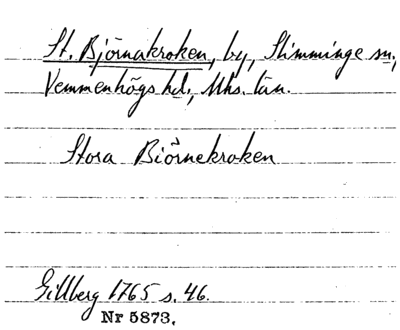 St. Björnakroken, by, Slimminge sn,
Vemmenhögs hd., Mhs. län.
Stora Biörnekroken
Gillberg 1765 s. 46.
Nr 5873.